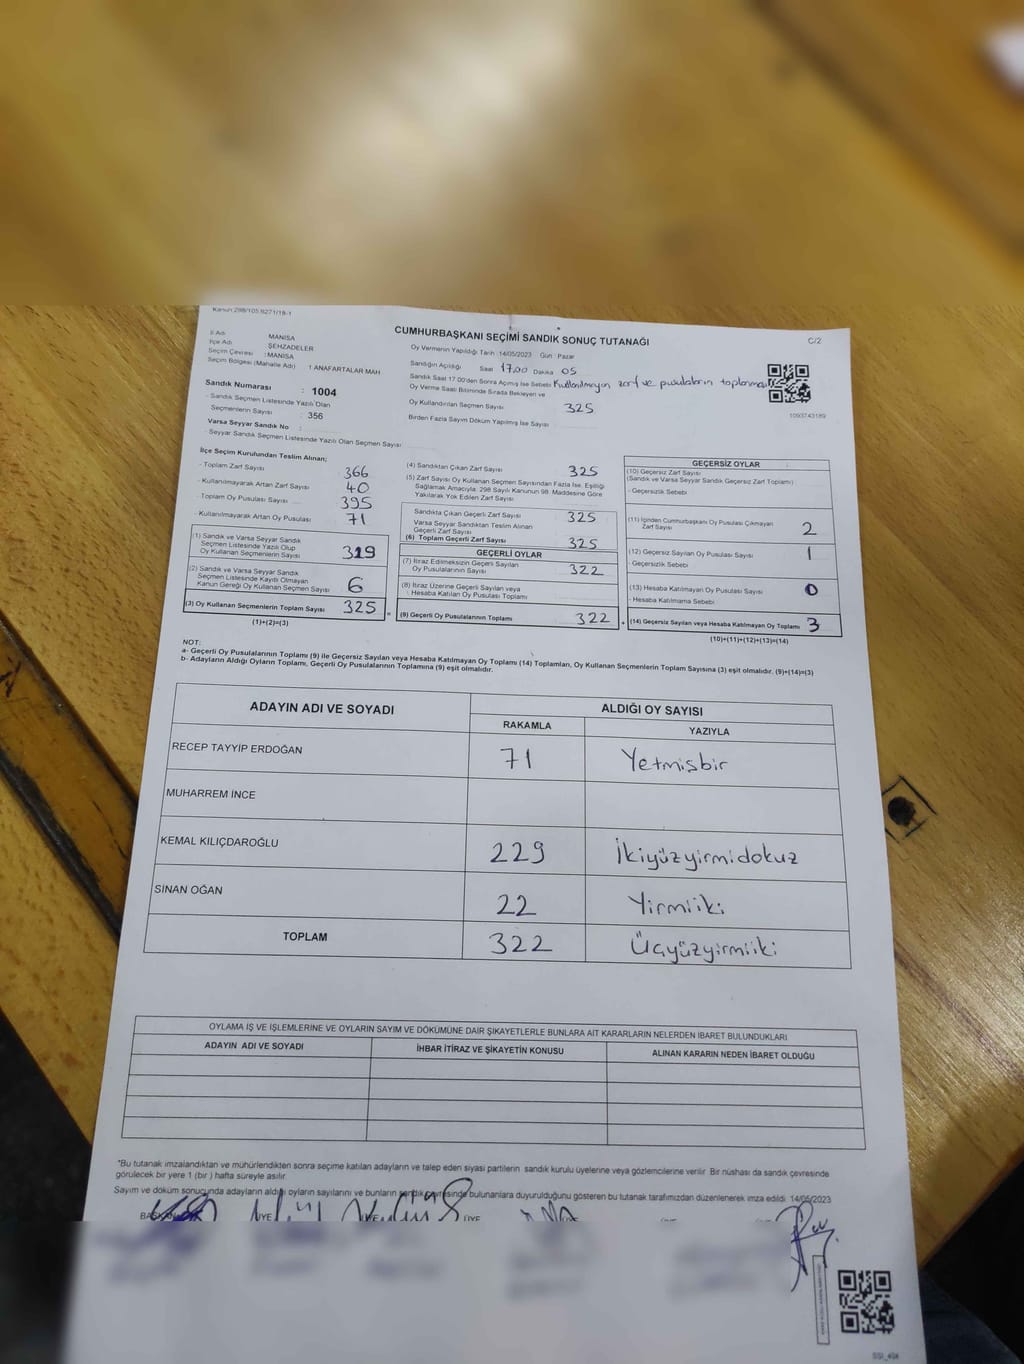 Kanun 298/105.8271/18-1
CUMHURBAŞKANI SEÇİMİ SANDIK SONUÇ TUTANAĞI
C/2
İl Adı : MANİSA
İlçe Adı : ŞEHZADELER
Seçim Çevresi : MANİSA
Seçim Bölgesi (Mahalle Adı) : 1 ANAFARTALAR MAH
Sandık Numarası : 1004
- Sandık Seçmen Listesinde Yazılı Olan
Seçmenlerin Sayısı : 356
Varsa Seyyar Sandık No :
- Seyyar Sandık Seçmen Listesinde Yazılı Olan Seçmen Sayısı
Oy Vermenin Yapıldığı Tarih : 14/05/2023 Gün : Pazar
Sandığın Açıldığı Saat 17.00 Dakika 05
Sandık Saat 17.00'den Sonra Açılmış İse Sebebi Kullanılmayan zarf ve pusulaların toplanması
Oy Verme Saati Bitiminde Sırada Bekleyen ve
Oy Kullandırılan Seçmen Sayısı 325
Birden Fazla Sayım Döküm Yapılmış İse Sayısı
1093743189
İlçe Seçim Kurulundan Teslim Alınan;
- Toplam Zarf Sayısı 366
- Kullanılmayarak Artan Zarf Sayısı 40
- Toplam Oy Pusulası Sayısı 395
- Kullanılmayarak Artan Oy Pusulası 71
(1) Sandık ve Varsa Seyyar Sandık
Seçmen Listesinde Yazılı Olup
Oy Kullanan Seçmenlerin Sayısı 319
(2) Sandık ve Varsa Seyyar Sandık
Seçmen Listesinde Kayıtlı Olmayan
Kanun Gereği Oy Kullanan Seçmen Sayısı 6
(3) Oy Kullanan Seçmenlerin Toplam Sayısı 325
(1)+(2)=(3)
(4) Sandıktan Çıkan Zarf Sayısı 325
(5) Zarf Sayısı Oy Kullanan Seçmen Sayısından Fazla İse, Eşitliği
Sağlamak Amacıyla; 298 Sayılı Kanunun 98. Maddesine Göre
Yakılarak Yok Edilen Zarf Sayısı
Sandıkta Çıkan Geçerli Zarf Sayısı 325
Varsa Seyyar Sandıktan Teslim Alınan
Geçerli Zarf Sayısı
(6) Toplam Geçerli Zarf Sayısı 325
GEÇERLİ OYLAR
(7) İtiraz Edilmeksizin Geçerli Sayılan
Oy Pusulalarının Sayısı 322
(8) İtiraz Üzerine Geçerli Sayılan veya
Hesaba Katılan Oy Pusulası Toplamı
(9) Geçerli Oy Pusulalarının Toplamı 322
GEÇERSİZ OYLAR
(10) Geçersiz Zarf Sayısı
(Sandık ve Varsa Seyyar Sandık Geçersiz Zarf Toplamı)
- Geçersizlik Sebebi
(11) İçinden Cumhurbaşkanı Oy Pusulası Çıkmayan
Zarf Sayısı 2
(12) Geçersiz Sayılan Oy Pusulası Sayısı 1
- Geçersizlik Sebebi
(13) Hesaba Katılmayan Oy Pusulası Sayısı 0
- Hesaba Katılmama Sebebi
(14) Geçersiz Sayılan veya Hesaba Katılmayan Oy Toplamı 3
(10)+(11)+(12)+(13)=(14)
NOT:
a- Geçerli Oy Pusulalarının Toplamı (9) ile Geçersiz Sayılan veya Hesaba Katılmayan Oy Toplamı (14) Toplamları, Oy Kullanan Seçmenlerin Toplam Sayısına (3) eşit olmalıdır. (9)+(14)=(3)
b- Adayların Aldığı Oyların Toplamı, Geçerli Oy Pusulalarının Toplamına (9) eşit olmalıdır.
ADAYIN ADI VE SOYADI
ALDIĞI OY SAYISI
RAKAMLA YAZIYLA
RECEP TAYYİP ERDOĞAN 71 Yetmişbir
MUHARREM İNCE
KEMAL KILIÇDAROĞLU 229 İkiyüzyirmidokuz
SİNAN OĞAN 22 Yirmiiki
TOPLAM 322 Üçyüzyirmiiki
OYLAMA İŞ VE İŞLEMLERİNE VE OYLARIN SAYIM VE DÖKÜMÜNE DAİR ŞİKAYETLERLE BUNLARA AİT KARARLARIN NELERDEN İBARET BULUNDUKLARI
ADAYIN ADI VE SOYADI İHBAR İTİRAZ VE ŞİKAYETİN KONUSU ALINAN KARARIN NEDEN İBARET OLDUĞU
*Bu tutanak imzalandıktan ve mühürlendikten sonra seçime katılan adayların ve talep eden siyasi partilerin sandık kurulu üyelerine veya gözlemcilerine verilir. Bir nüshası da sandık çevresinde
görülecek bir yere 1 (bir ) hafta süreyle asılır.
Sayım ve döküm sonucunda adayların aldığı oyların sayılarını ve bunların sandık çevresinde bulunanlara duyurulduğunu gösteren bu tutanak tarafımızdan düzenlenerek imza edildi. 14/05/2023
BAŞKAN ÜYE ÜYE ÜYE ÜYE